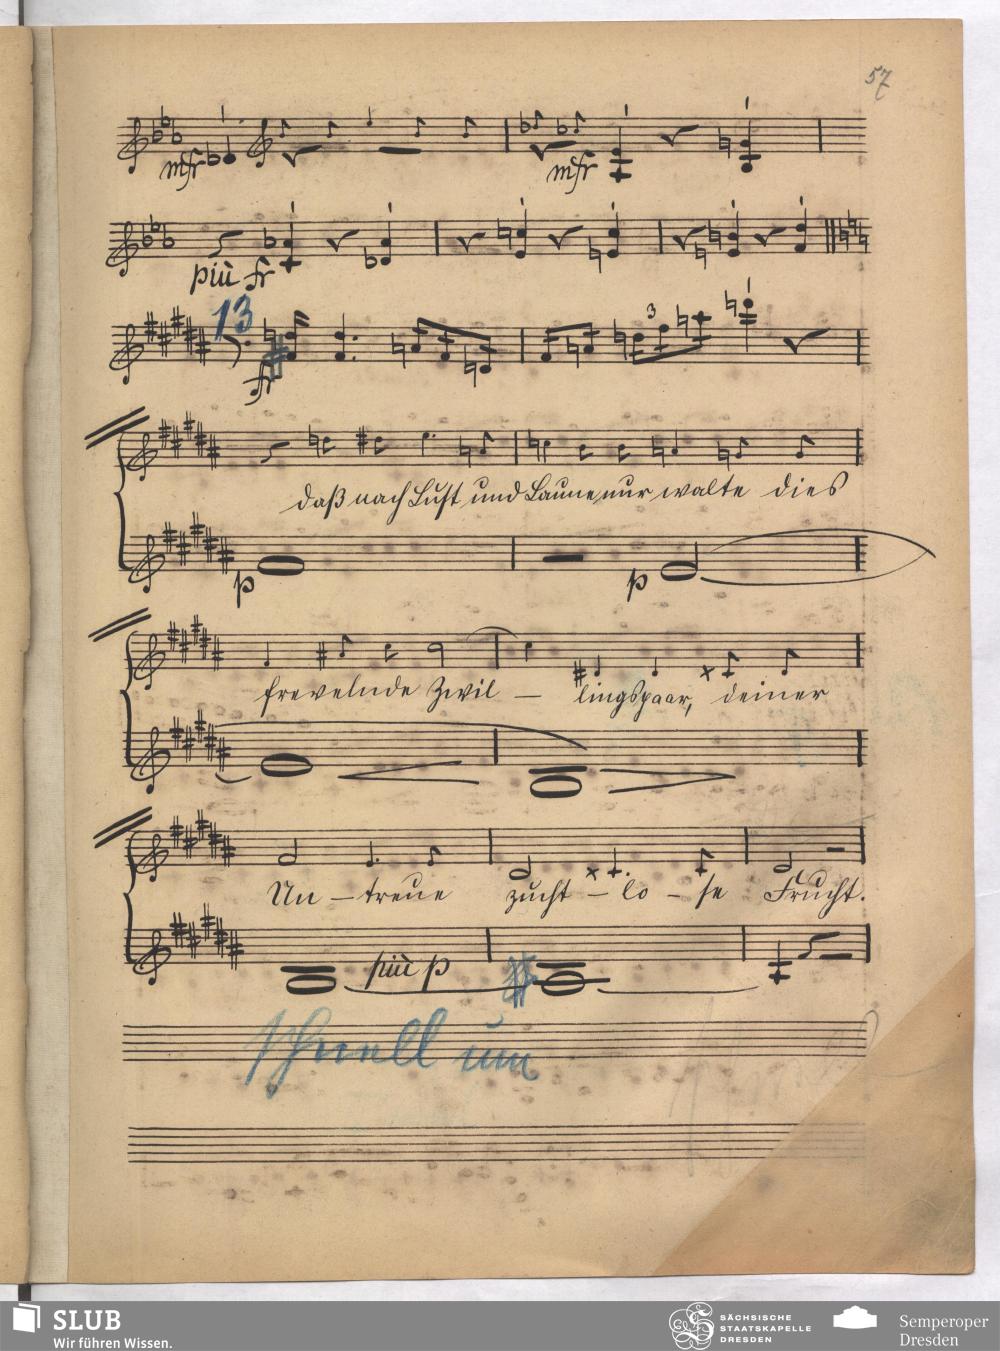 57
mfr
mfr
più fr
13
fr
3
daß nach Lust und Laune nur walte dies
p
p
frevelnde Zwil – lingspaar, deiner
Un – treue zucht – lo – se Frucht.
più p
schnell um
SLUB
Wir führen Wissen.
SÄCHSISCHE
STAATSKAPELLE
DRESDEN
Semperoper
Dresden